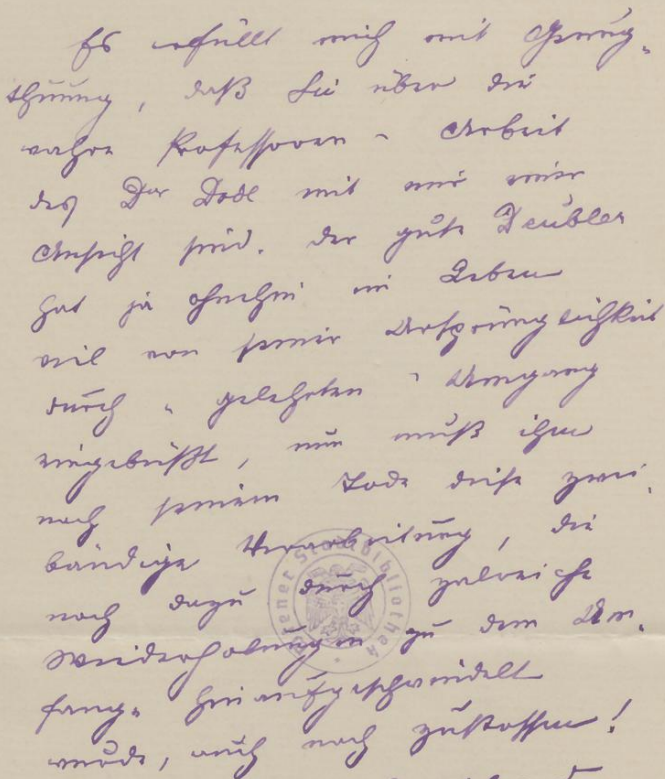 Es erfüllt mich mit Genug-
thuung, daß Sie über die
wahre Professoren - Arbeit
des Dr Dodl mit mir einer
Ansicht sind. Der gute Deubler
hat ja ohnehin im Leben
viel von seiner Ursprünglichkeit
durch "gelehrten" Umgang
eingebüßt, nun muß ihm
nach seinem Tode diese zwei-
bändige Verarbeitung, die
noch dazu durch zalreiche
Wiederholungen zu dem Um-
fange hinaufgeschwindelt
wurde, auch noch zustossen!
Wiener Stadtbibliothek